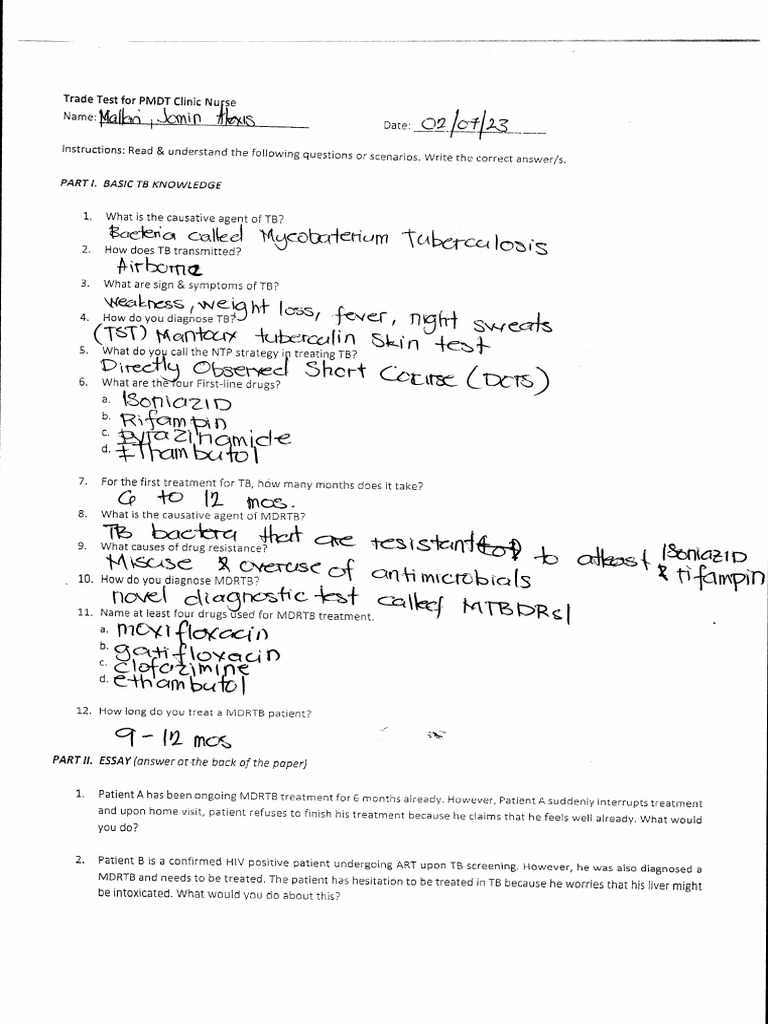 Trade Test for PMDT Clinic Nurse
Name: Mallari, Jomin Alexis
Date: 02/07/23
Instructions: Read & understand the following questions or scenarios. Write the correct answer/s.
PART I. BASIC TB KNOWLEDGE
1. What is the causative agent of TB?
Bacteria called Mycobaterium Tuberculosis
2. How does TB transmitted?
Airborne
3. What are sign & symptoms of TB?
Weakness, weight loss, fever, night sweats
4. How do you diagnose TB?
(TST) Mantoux tuberculin skin test
5. What do you call the NTP strategy in treating TB?
Directly Observed Short Course (DOTS)
6. What are the four First-line drugs?
a. ISONIAZID
b. Rifampin
c. Pyrazinamide
d. Ethambutol
7. For the first treatment for TB, how many months does it take?
6 to 12 mos.
8. What is the causative agent of MDRTB?
TB bactera that are resistant to atleast ISoniAZID & rifampin
9. What causes of drug resistance?
Misuse & overuse of antimicrobials
10. How do you diagnose MDRTB?
novel diagnostic test called MTBDRsl
11. Name at least four drugs used for MDRTB treatment.
a. moxifloxacin
b. gatifloxacin
c. clofazimine
d. ethambutol
12. How long do you treat a MDRTB patient?
9 - 12 mos
PART II. ESSAY (answer at the back of the paper)
1. Patient A has been ongoing MDRTB treatment for 6 months already. However, Patient A suddenly interrupts treatment
and upon home visit, patient refuses to finish his treatment because he claims that he feels well already. What would
you do?
2. Patient B is a confirmed HIV positive patient undergoing ART upon TB screening. However, he was also diagnosed a
MDRTB and needs to be treated. The patient has hesitation to be treated in TB because he worries that his liver might
be intoxicated. What would you do about this?